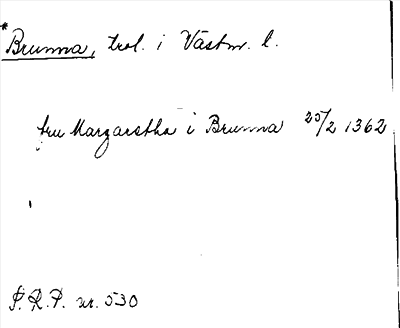 *Brunna, trol. i Västm. l.
fru Margaretha i Brunna 25/2 1362
P.R.P. nr. 530